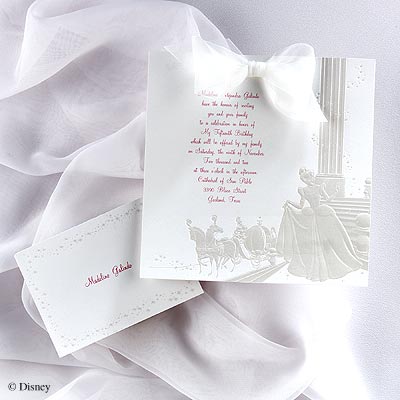 Madeline Alejandra Galindo
have the honour of inviting
you and your family
to a celebration in honor of
My Fifteenth Birthday
which will be offered by my family
on Saturday, the ninth of November
Two thousand and two
at three o'clock in the afternoon
Cathedral of San Pablo
3390 Street
Garland, Texas
Madeline Galindo
© Disney